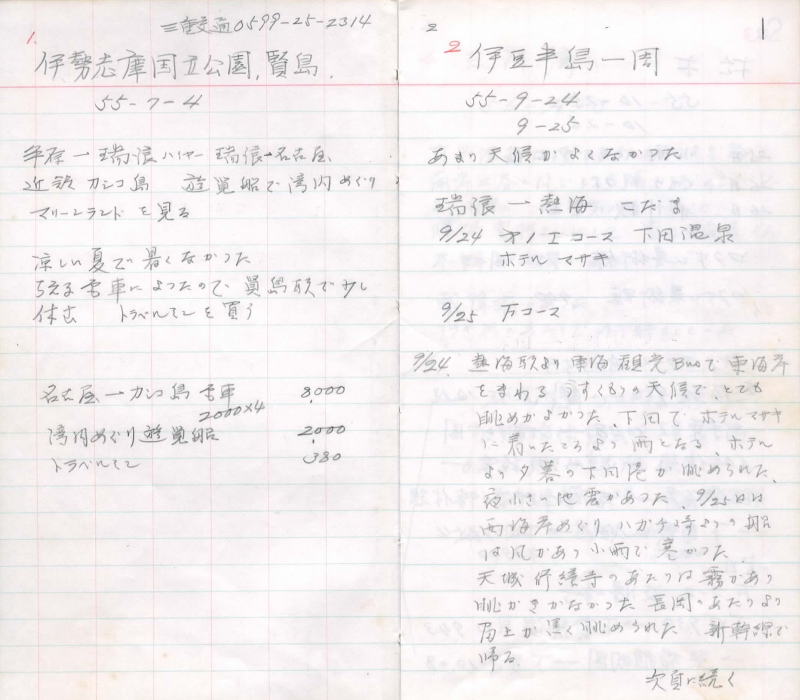 三重交通 0599-25-2314
1.
伊勢志摩国立公園,賢島.
55-7-4
瑞浪ハイヤー 瑞浪→名古屋
近鉄 カシコ島 遊覧船で湾内めぐり
マリーンランドを見る
涼しい夏で暑くなかった
電車によったので 賢島駅で少し
休む トラベルミンを買う
名古屋ーカシコ島 電車 8,000
2000×4
湾内めぐり遊覧船 2,000
トラベルミン 380
2
2 伊豆半島一周
55-9-24
9-25
あまり天候がよくなかった
瑞浪 → 熱海 こだま
9/24 コース 下田温泉
ホテル マサキ
9/25 コース
9/24. 熱海駅より東海観光Busで東海岸
をまわる うすくもりの天候で、とても
眺めがよかった、下田でホテルマサキ
に着いたころより雨となる、ホテル
より夕暮の下田港が眺められた、
夜小さい地震があった、9/25日は
西海岸めぐり ハガチ崎よりの船
は風があり小雨で寒かった
天城 修繕寺のあたりは霧があり
眺がきかなかった 長岡のあたりより
富士が黒く眺められた 新幹線で
帰る
次頁に続く